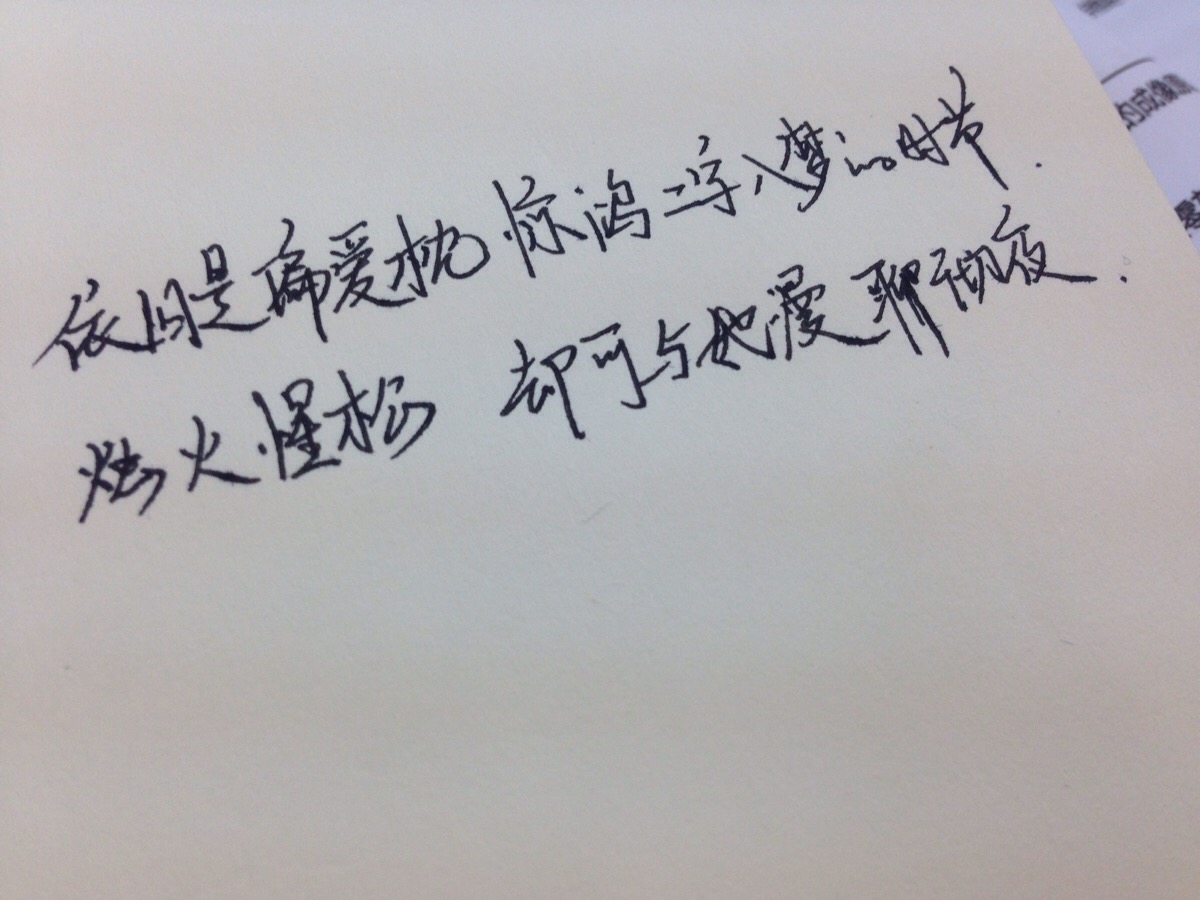 依旧是偏爱枕惊鸿二字入梦的时节.
烛火惺松 却可与她漫聊彻夜.
的成像